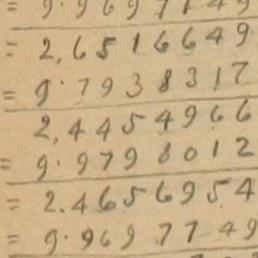 = 2,6516649
= 9.7938317
2,4454966
= 9.9798012
= 2.4656954
= 9.9697749